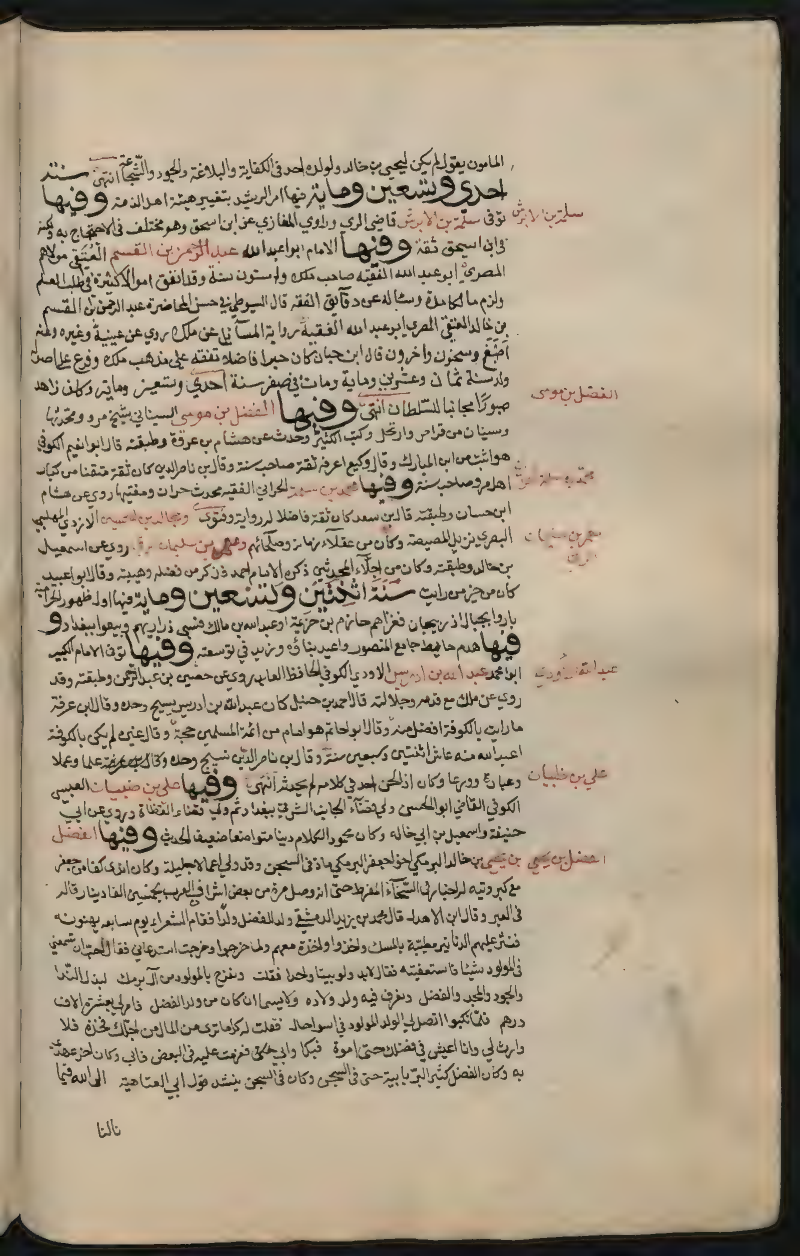 المامون يقول لم يكن ليحيى بن خالد ولولده احد في الكفاية والبلاغة والجود والشجاعة انتهى سنة
احدى وتسعين وماية فيها امر الرشيد بتغيير هيئة اهل الذمة وفيها
سلمة بن الابرش
توفى سلمة بن الابرش قاضي الري وراوي المغازي عن ابن اسحق وهو مختلف في الاحتجاج به ولكنه
في ابن اسحق ثقة وفيها الامام ابو عبد الله عبد الرحمن بن القسم العتقي مولاهم
المصري ابو عبد الله الفقيه صاحب ملك وله ستون سنة وقد انفق اموالا كثيرة في طلب العلم
ولزم مالكا مدة وساله عن دقائق الفقه قال السيوطي في حسن المحاضرة عبد الرحمن بن القسم
بن خالد العتقي المصري ابو عبد الله الفقيه رواية المسائل عن ملك روي عن عيينة وغيره وعنه
اصبغ وسحنون واخرون قال ابن حبان كان حبرا فاضلا تفقه على مذهب ملك وفرع على اصله
ولد سنة ثمان وعشرين وماية ومات في صفر سنة احدى وتسعين وماية وكان زاهد
الفضل بن موسى
صبورا مجانبا للسلطان انتهى وفيها الفضل بن موسى السيناني شيخ مرو ومحدثها
وسينان من قرا مرو ارتحل وكتب الكثير وحدث عن هشام بن عروة وطبقته قال ابو نعيم الكوفي
هو اثبت من ابن المبارك وقال وكيع اعرفه ثقة صاحب سنة وقال بن ناصر الدين كان ثقة متقنا من كبار
محمد بن سلمة
اهل مرو صاحب سنة وفيها محمد بن سلمة الحراني الفقيه محدث حران ومفتيها روي عن هشام
ابن حسان وطبقته قال بن سعد كان ثقة فاضلا له رواية وفتوى ومخالد بن الحسين الازدي المهلبي
معمر بن سليمان الرقي
البصري نزيل المصيصة وكان من عقلاء زمانه وصلحائهم ومعمر بن سليمان الرقي روي عن اسمعيل
بن خالد وطبقته وكان من اجلاء المحدثين ذكره الامام احمد فذكر من فضله وهيبته وقال ابو عبيد
كان من خير من رايت سنة اثنتين وتسعين وماية فيها اول ظهور الخرامية
باروا بجبال اذربيجان فغزاهم حازم بن خزيمة او عبد الله بن مالك فسبى ذراريهم وبيعوا ببغداد و
فيها هدم حائط جامع المنصور واعيد بناؤه وزيد في توسعته وفيها توفى الامام الكبير
عبد الله الاودي
ابو محمد عبد الله بن ادريس الاودي الكوفي الحافظ العابد روي عن حصين بن عبد الرحمن وطبقته وقد
روي عن ملك مع قدمه وجلالته قال احمد بن حنبل كان عبد الله بن ادريس نسيج وحده وقال ابن عرفة
ما رايت بالكوفة افضل منه وقال ابو حاتم هو امام من ائمة المسلمين حجة وقال غيره لم يكن بالكوفة
اعبد لله منه عاش اثنتين وسبعين سنة وقال بن ناصر الدين نسيج وحده وكان علما وعملا
علي بن ظبيان
وعبادة وورعا وكان اذا لحن احد في كلامه لم يحدثه انتهى وفيها علي بن ظبيان العبسي
الكوفي القاضي ابو الحسن ولي قضاء الجانب الشرقي ببغداد ثم ولي قضاء القضاة وروي عن ابي
حنيفة واسمعيل بن ابي خالد وكان محمود الكلام دينا متواضعا ضعيف الحديث وفيها الفضل
الفضل بن يحيى
بن يحيى بن خالد البرمكي اخو جعفر البرمكي مات في السجن وقد ولي اعمالا جليلة وكان اندى كفا من جعفر
مع كبر وتيه له اخبار في السخاء المفرط حتى انه وصل مرة من بعض اشراف العرب بخمسين الف دينار قاله
في العبر وقال ابن الاهدل قال محمد بن يزيد الدمشقي ولد للفضل ولد فقام الشعراء يوم سابعه يهنونه
فنثر عليهم الدنانير مطيبة بالمسك واخذوا واخذت معهم ولما خرجوا وخرجت استدعاني فقال احب ان تسمعني
في المولود شيئا فاستعفيته فقال لابد ولو بيتا واحدا فقلت ونفرح بالمولود من آل برمك لبذل الندا
والجود والمجد والفضل ونعرف فيه ولد ولاده ولاسيما ان كان من ولد الفضل فامر لي بعشرة الاف
درهم فلما نكبوا اتصل لي الولد المولود في اسوا حال فقلت له كل ما ترى من المال من اجلك فخذه فلا
وارث لي وانا اعيش في فضلك حتى اموت فبكا وابى فعزمت عليه في البعض فابى وكان اخر عهدي
به وكان الفضل كثير البر بابيه حتى في السجن وكان في السجن ينشد قول ابي العتاهية الى الله فيما
نالنا